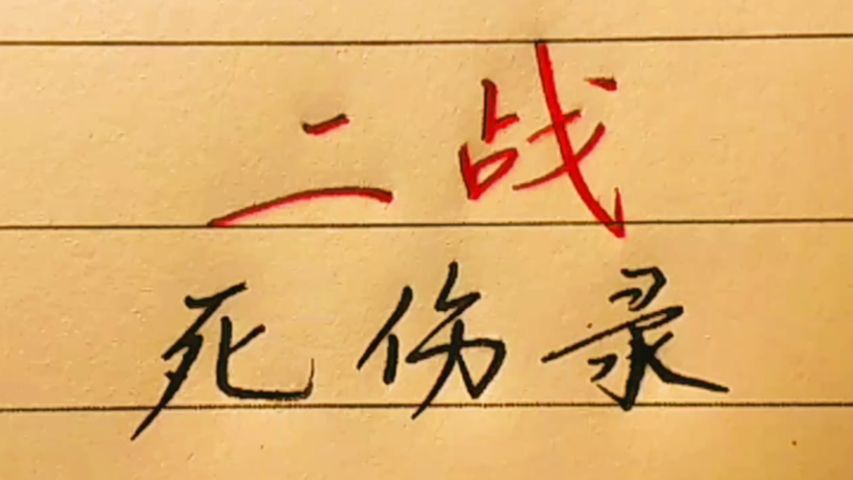 二战
死伤录